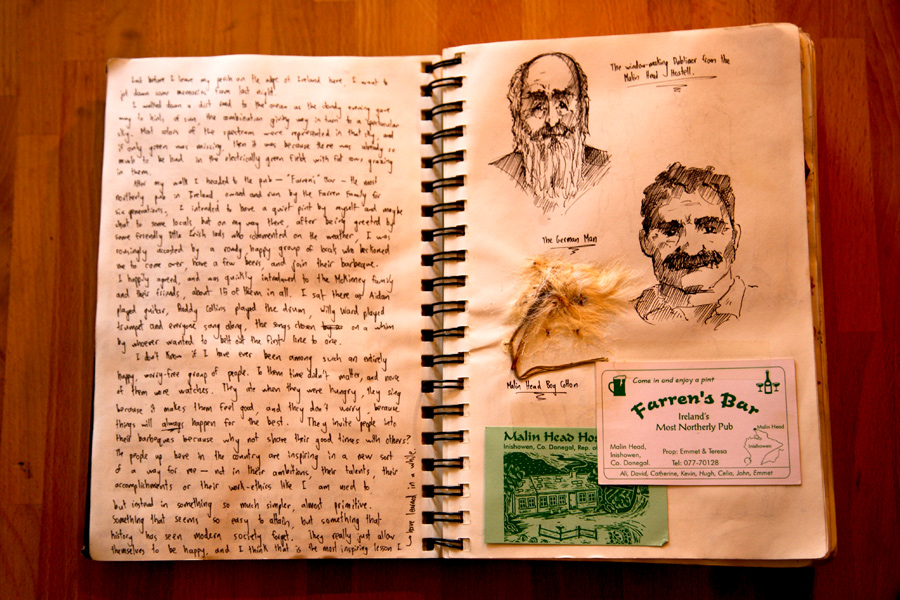 Just before I leave my perch on the edge of Ireland here, I want to
jot down some memories from last night.
I walked down a dirt road to the ocean as the cloudy evening gave
way to kids of sun, the combination giving way in turn to a spectacular
sky. Most colors of the spectrum were represented in that sky, and
if only green was missing, then it was because there was already so
much to be had in the electrically green fields with fat cows grazing
in them.
After my walk I headed to the pub – "Farren's" Bar – the most
northerly pub in Ireland owned and run by the Farren family for
six generations. I intended to have a quiet pint by myself and maybe
chat to some locals but on my way there, after being greeted by
some friendly little Irish lads who commented on the weather, I was
rousingly accosted by a roudy, happy group of locals who beckoned
me to come over have a few beers and join their barbeque.
I happily agreed, and was quickly introduced to the McKinney family
and their friends, about 15 of them in all. I sat there as Aidan
played guitar, Paddy Collins played the drum, Willy Ward played
trumpet and everyone sang along, the songs chosen on a whim
by whoever wanted to belt out the first line to one.
I don't know if I have ever been among such an entirely
happy, worry-free group of people. To them time didn't matter, and none
of them wore watches. They ate when they were hungry, they sing
because it makes them feel good, and they don't worry because
things will always happen for the best. They invite people into
their barbeques because why not share their good times with others?
The people up here in the country are inspiring in a new sort
of a way for me – not in their ambitions, their talents, their
accomplishments or their work-ethics like I am used to
but instead in something so much simpler, almost primitive.
Something that seems so easy to attain, but something that
history has seen modern society forget. They really just allow
themselves to be happy, and I think that is the most inspiring lesson I
have learned in a while.
The window-making Dubliner from the
Malin Head Hostel.
The German Man
Malin Head Bog Cotton
Malin Head Hos
Inishowen, Co. Donegal, Rep. o
Come in and enjoy a pint
Farren's Bar
Ireland's
Most Northerly Pub
Malin Head
Inishowen
Malin Head,
Inishowen,
Co. Donegal.
Prop: Emmet & Teresa
Tel: 077-70128
Ali, David, Catherine, Kevin, Hugh, Celia, John, Emmet